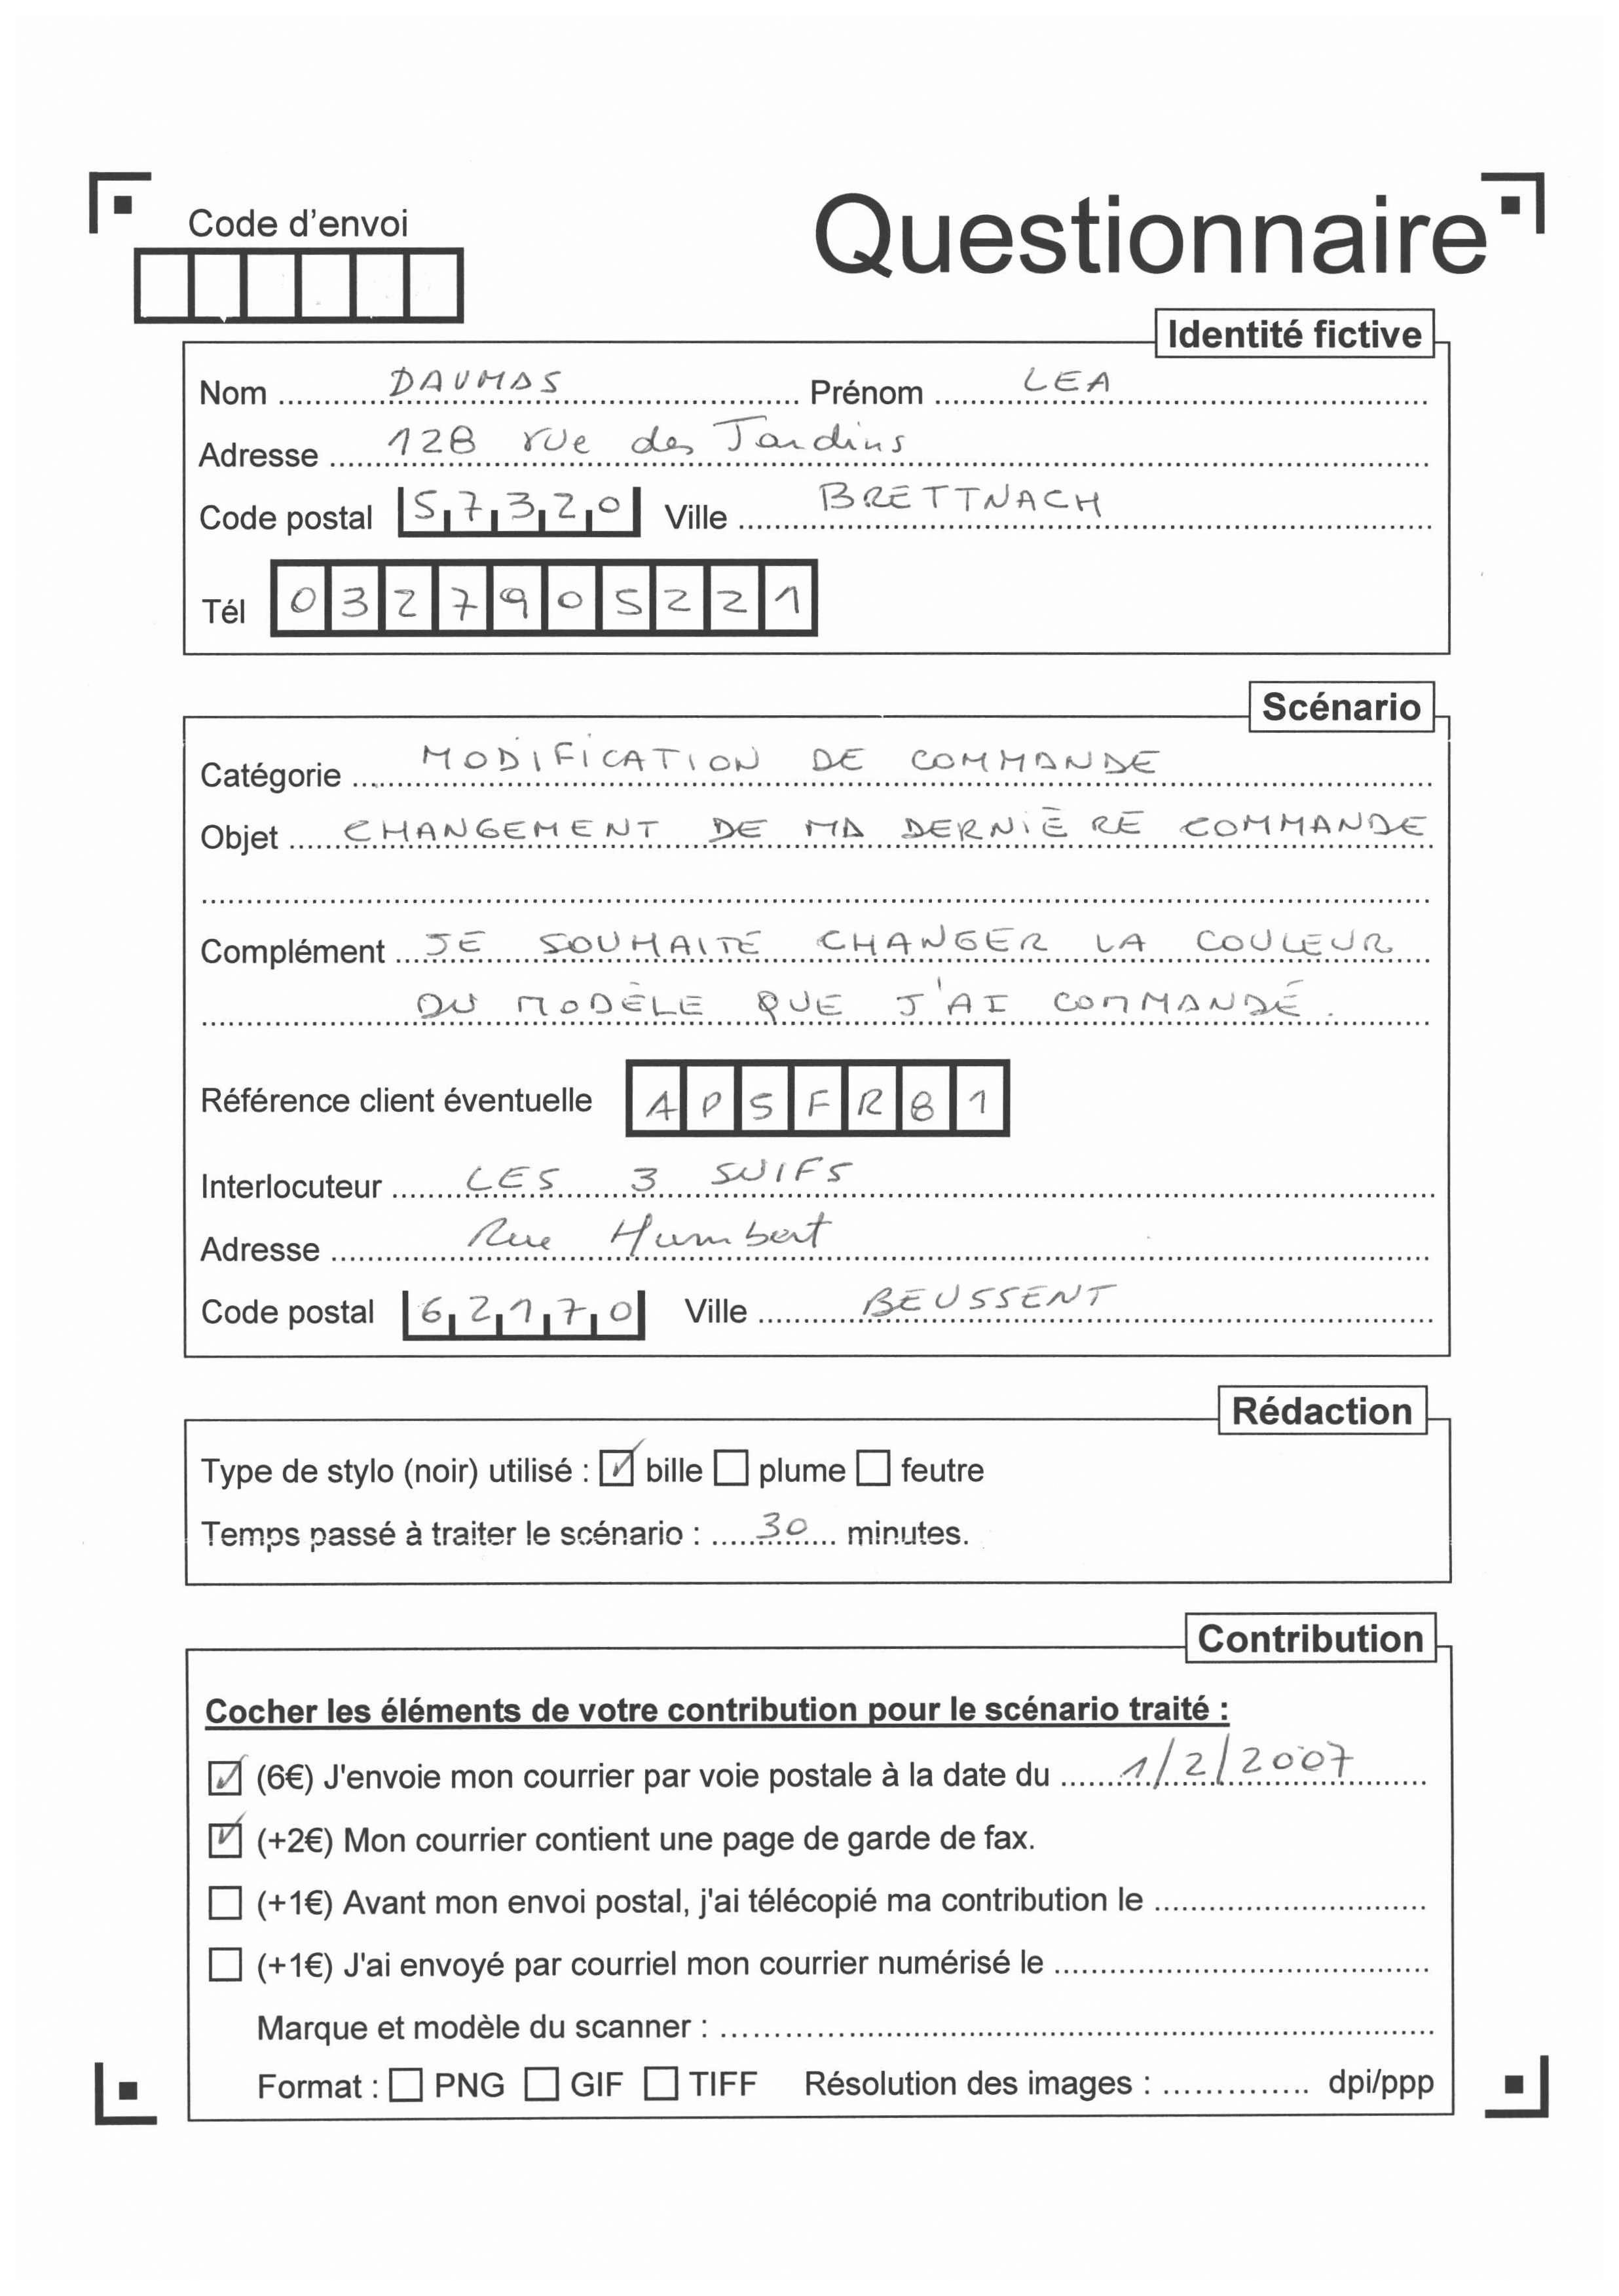 Code d'envoi
Questionnaire
Identité fictive
Nom DAUMAS Prénom LEA
Adresse 128 rue des Jardins
Code postal 57320 Ville BRETTNACH
Tél 0327905221
Scénario
Catégorie MODIFICATION DE COMMANDE
Objet CHANGEMENT DE MA DERNIÈRE COMMANDE
Complément JE SOUHAITE CHANGER LA COULEUR
DU MODÈLE QUE J'AI COMMANDÉ.
Référence client éventuelle APSFR81
Interlocuteur LES 3 SUIFS
Adresse Rue Humbert
Code postal 62170 Ville BEUSSENT
Rédaction
Type de stylo (noir) utilisé : bille plume feutre
Temps passé à traiter le scénario : 30 minutes.
Contribution
Cocher les éléments de votre contribution pour le scénario traité :
(6€) J'envoie mon courrier par voie postale à la date du 1/2/2007
(+2€) Mon courrier contient une page de garde de fax.
(+1€) Avant mon envoi postal, j'ai télécopié ma contribution le
(+1€) J'ai envoyé par courriel mon courrier numérisé le
Marque et modèle du scanner :
Format : PNG GIF TIFF Résolution des images : dpi/ppp